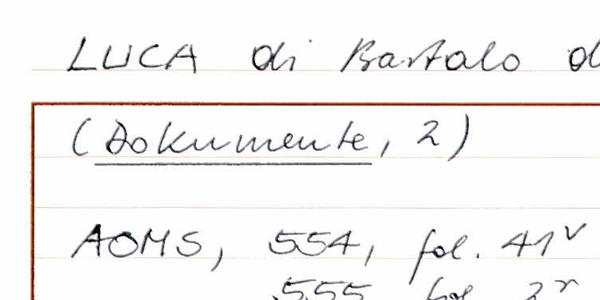 LUCA di Bartalo
(Dokumente, 2)
AOMS, 554, fol. 41v
555 fol. 2r